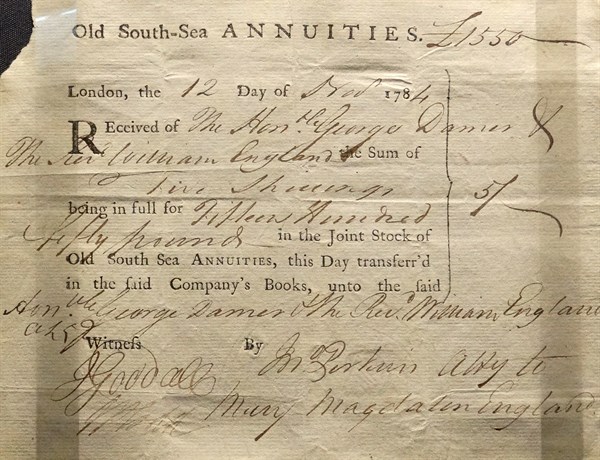 Old South-Sea ANNUITIES. £1550
London, the 12 Day of Nov 1784
REceived of The Honble George Damer &
The Revd William England the Sum of
Five Shillings 5/
being in full for Fifteen Hundred
fifty pounds in the Joint Stock of
Old South Sea ANNUITIES, this Day transferr'd
in the said Company's Books, unto the said
Honble George Damer & the Revd William England
Witness By Jno Perkins Atty to
J Goddall Mary Magdalen England